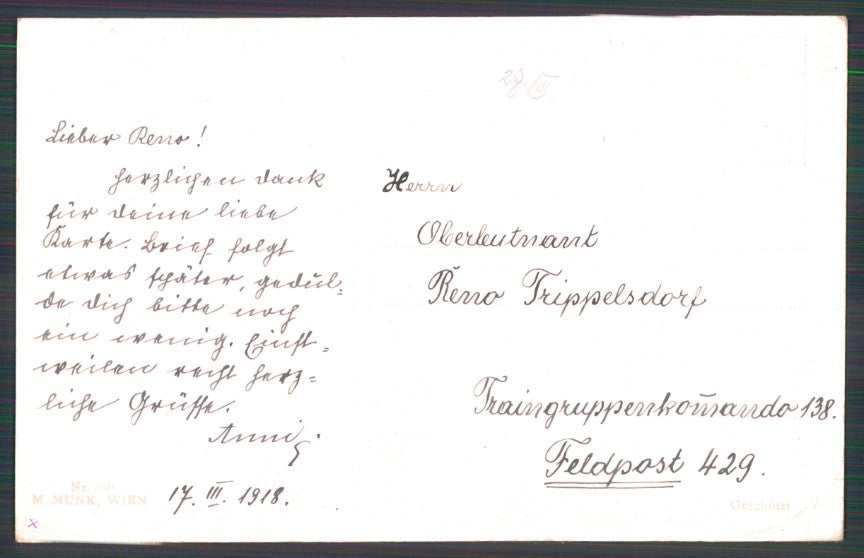 29. III
Lieber Reno!
Herzlichen Dank
für Deine liebe
Karte. Brief folgt
etwas später, gedul-
de Dich bitte noch
ein wenig. Einst-
weilen recht herz-
liche Grüsse.
Anni
17. III. 1918.
Herrn
Oberleutnant
Reno Trippelsdorf
Traingruppenkom̅ando 138.
Feldpost 429.
M. MUNK, WIEN
Geschützt